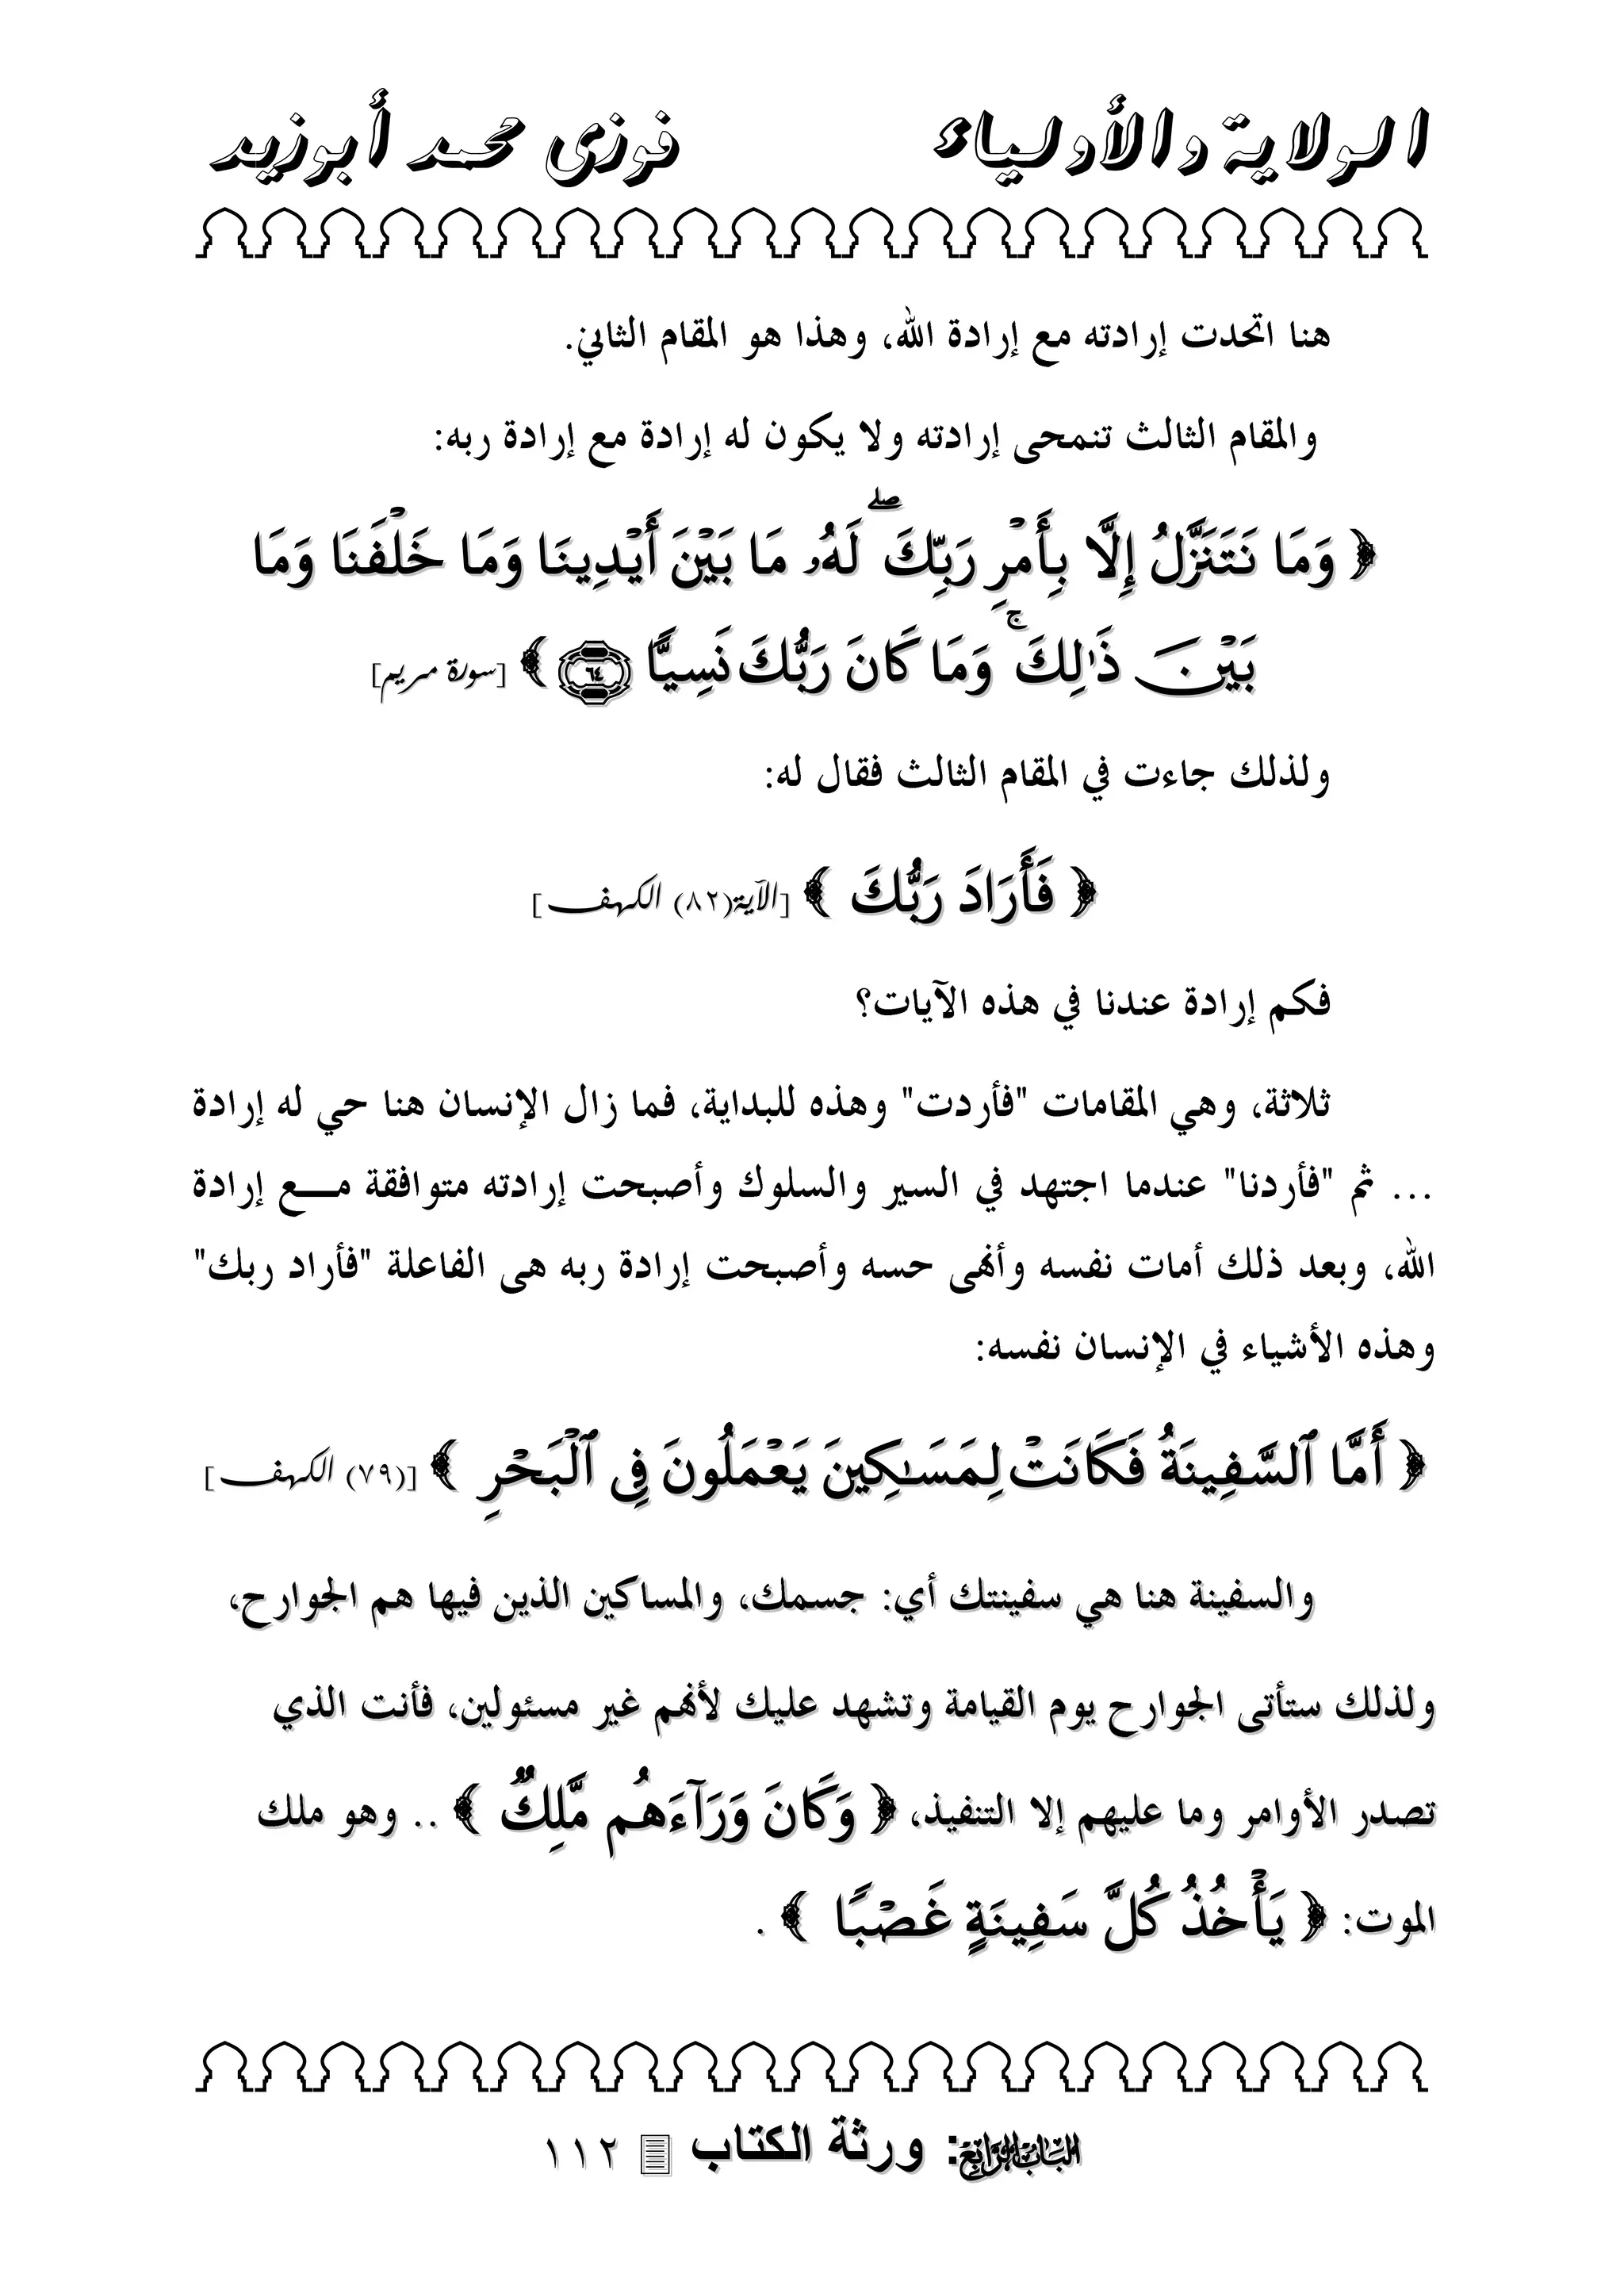 الولاية والأولياء فوزى محمد أبوزيد
هنا اتحدت إرادته مع إرادة الله، وهذا هو المقام الثاني.
والمقام الثالث تنمحى إرادته ولا يكون له إرادة مع إرادة ربه:
﴿ وَمَا نَتَنَزَّلُ إِلَّا بِأَمْرِ رَبِّكَ ۖ لَهُۥ مَا بَيْنَ أَيْدِينَا وَمَا خَلْفَنَا وَمَا
بَيْنَ ذَٰلِكَ ۚ وَمَا كَانَ رَبُّكَ نَسِيًّا ٦٤ ﴾ [سورة مريم]
ولذلك جاءت في المقام الثالث فقال له:
﴿ فَأَرَادَ رَبُّكَ ﴾ [الآية(٨٢) الكهف]
فكم إرادة عندنا في هذه الآيات؟
ثلاثة، وهي المقامات "فأردت" وهذه للبداية، فما زال الإنسان هنا حي له إرادة
... ثم "فأردنا" عندما اجتهد في السير والسلوك وأصبحت إرادته متوافقة مـــع إرادة
الله، وبعد ذلك أمات نفسه وأنهى حسه وأصبحت إرادة ربه هى الفاعلة "فأراد ربك"
وهذه الأشياء في الإنسان نفسه:
﴿ أَمَّا ٱلسَّفِينَةُ فَكَانَتْ لِمَسَٰكِينَ يَعْمَلُونَ فِى ٱلْبَحْرِ ﴾ [(٧٩) الكهف]
والسفينة هنا هي سفينتك أي: جسمك، والمساكين الذين فيها هم الجوارح،
ولذلك ستأتى الجوارح يوم القيامة وتشهد عليك لأنهم غير مسئولين، فأنت الذي
تصدر الأوامر وما عليهم إلا التنفيذ، ﴿ وَكَانَ وَرَآءَهُم مَّلِكٌ ﴾ .. وهو ملك
الموت: ﴿ يَأْخُذُ كُلَّ سَفِينَةٍ غَصْبًا ﴾ .
الباب الرابع: ورثة الكتاب ١١٢